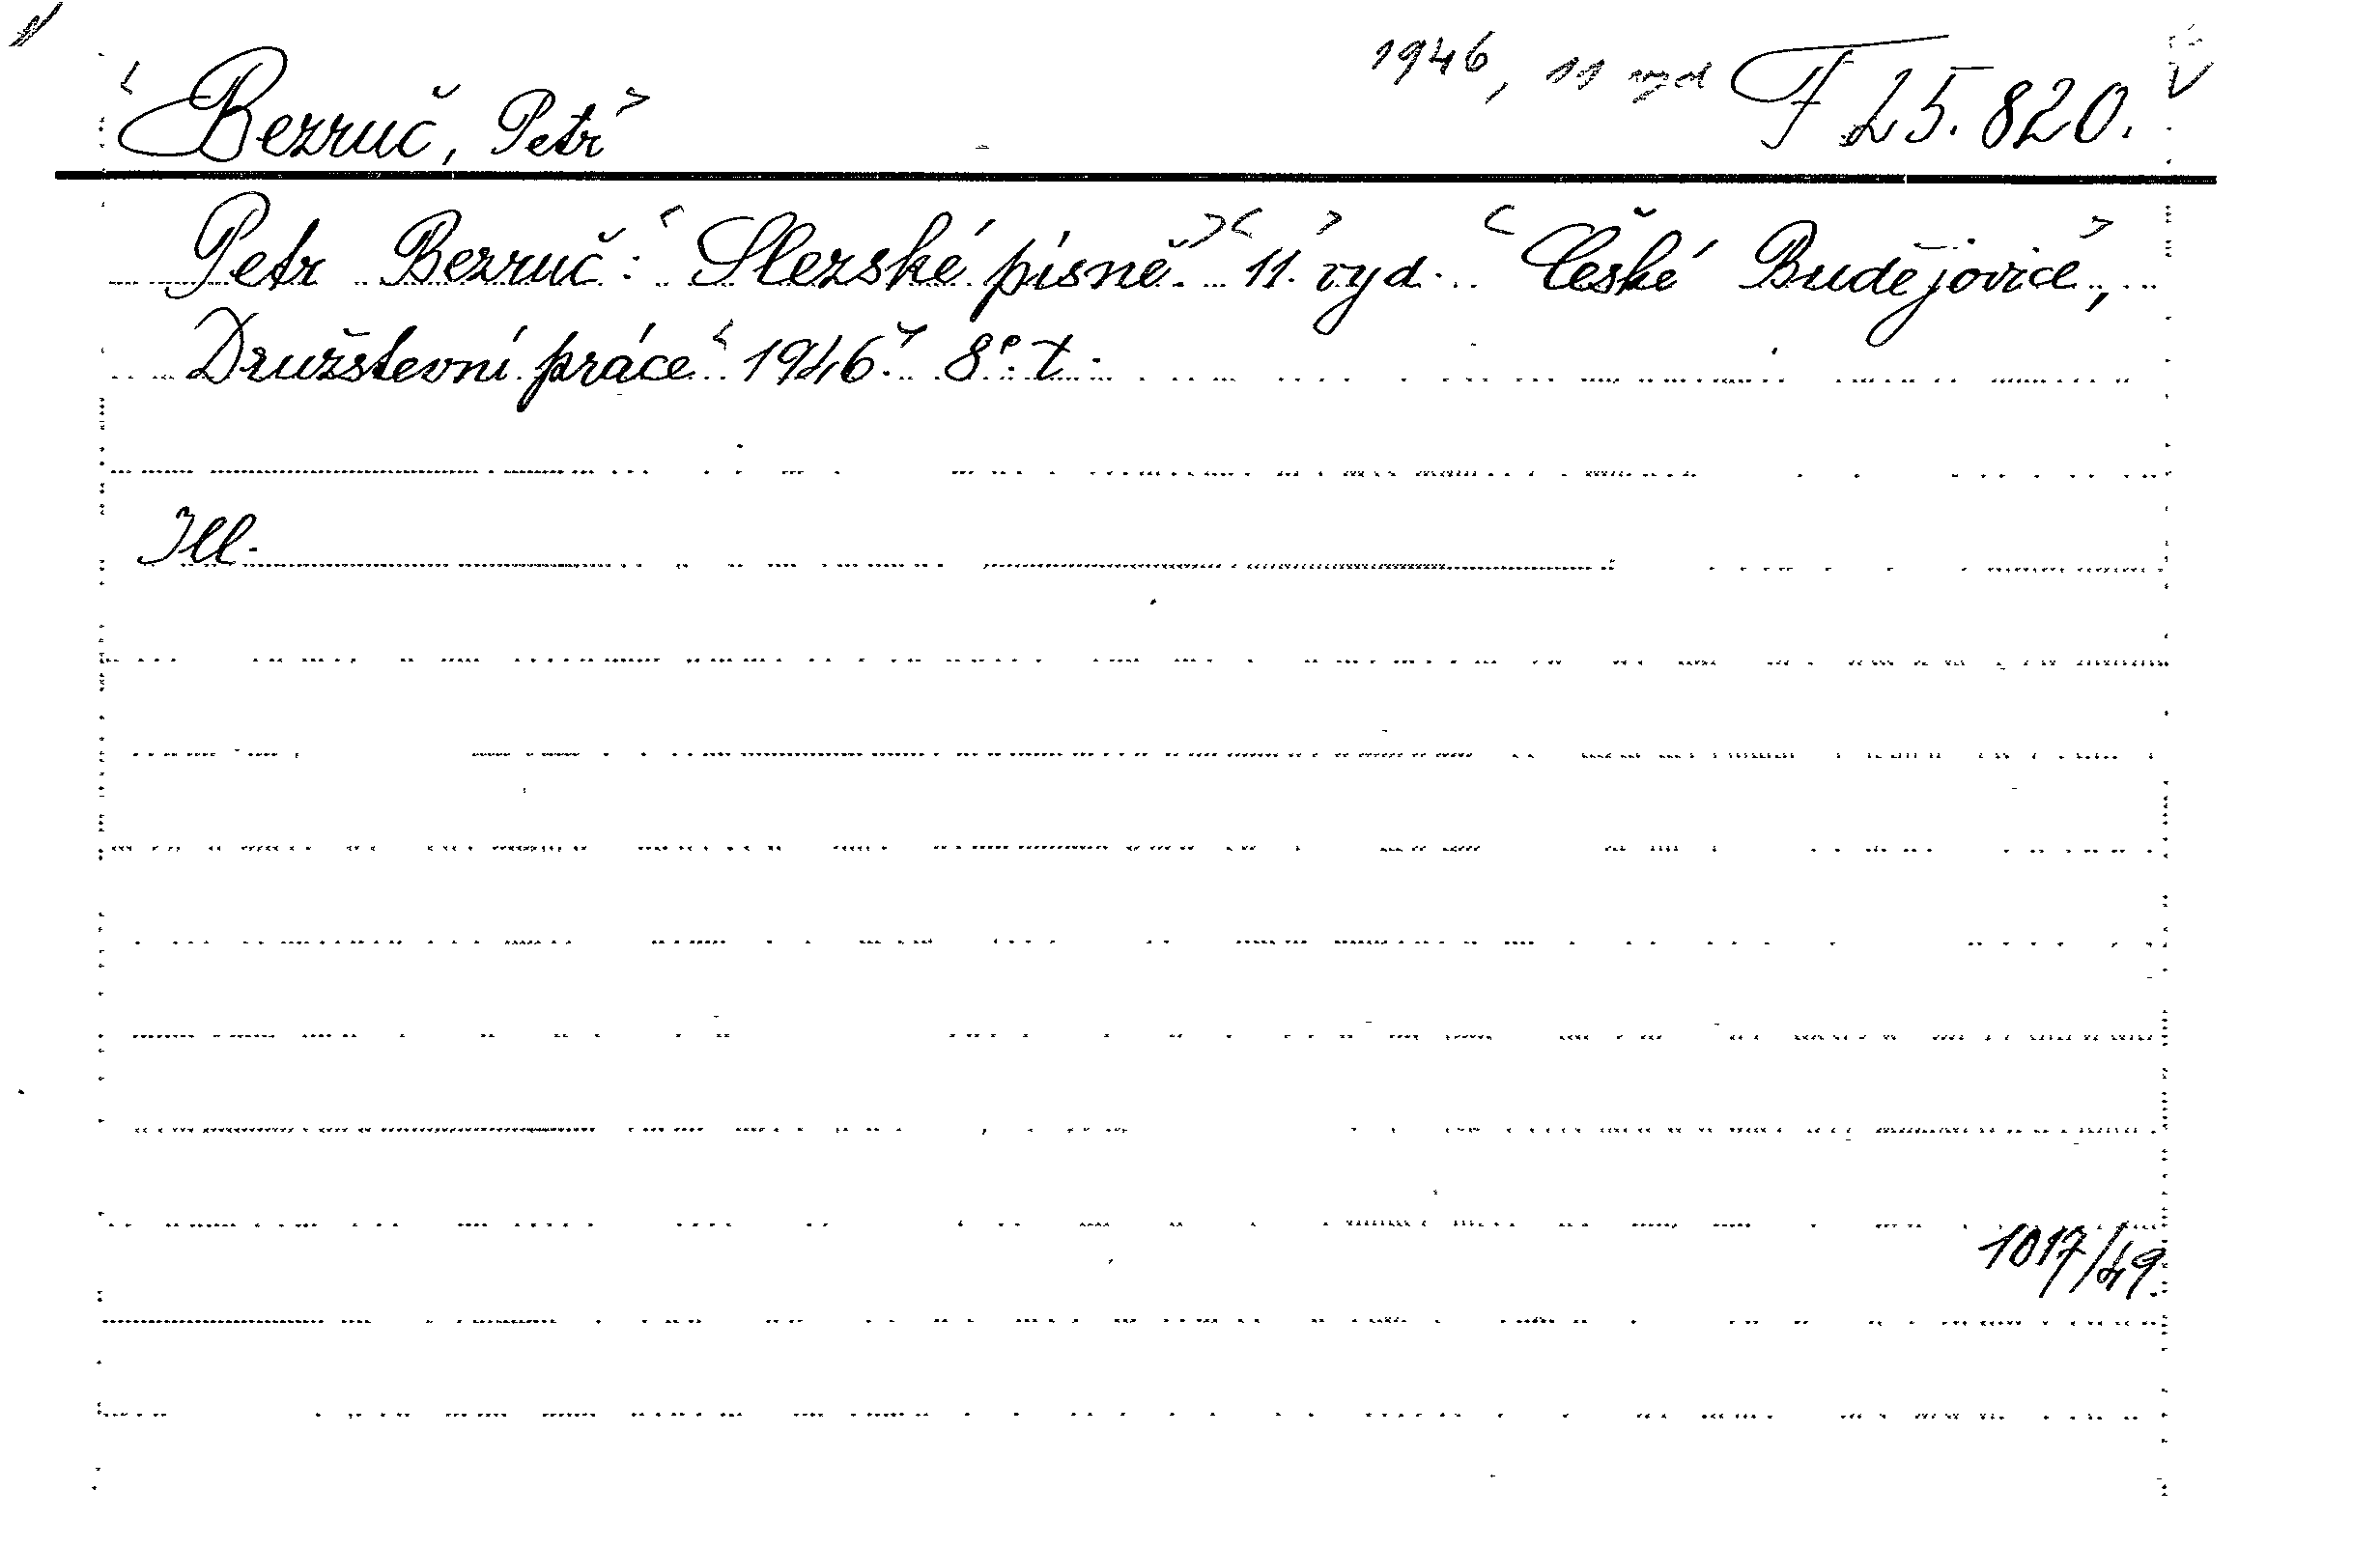 Bezruč, Petr 1946, 11 vyd F 25.820.
Petr Bezruč: Slezské písně. 11. vyd. České Budějovice,
Družstevní práce 1946. 8°. t.
Ill.
1017/49.